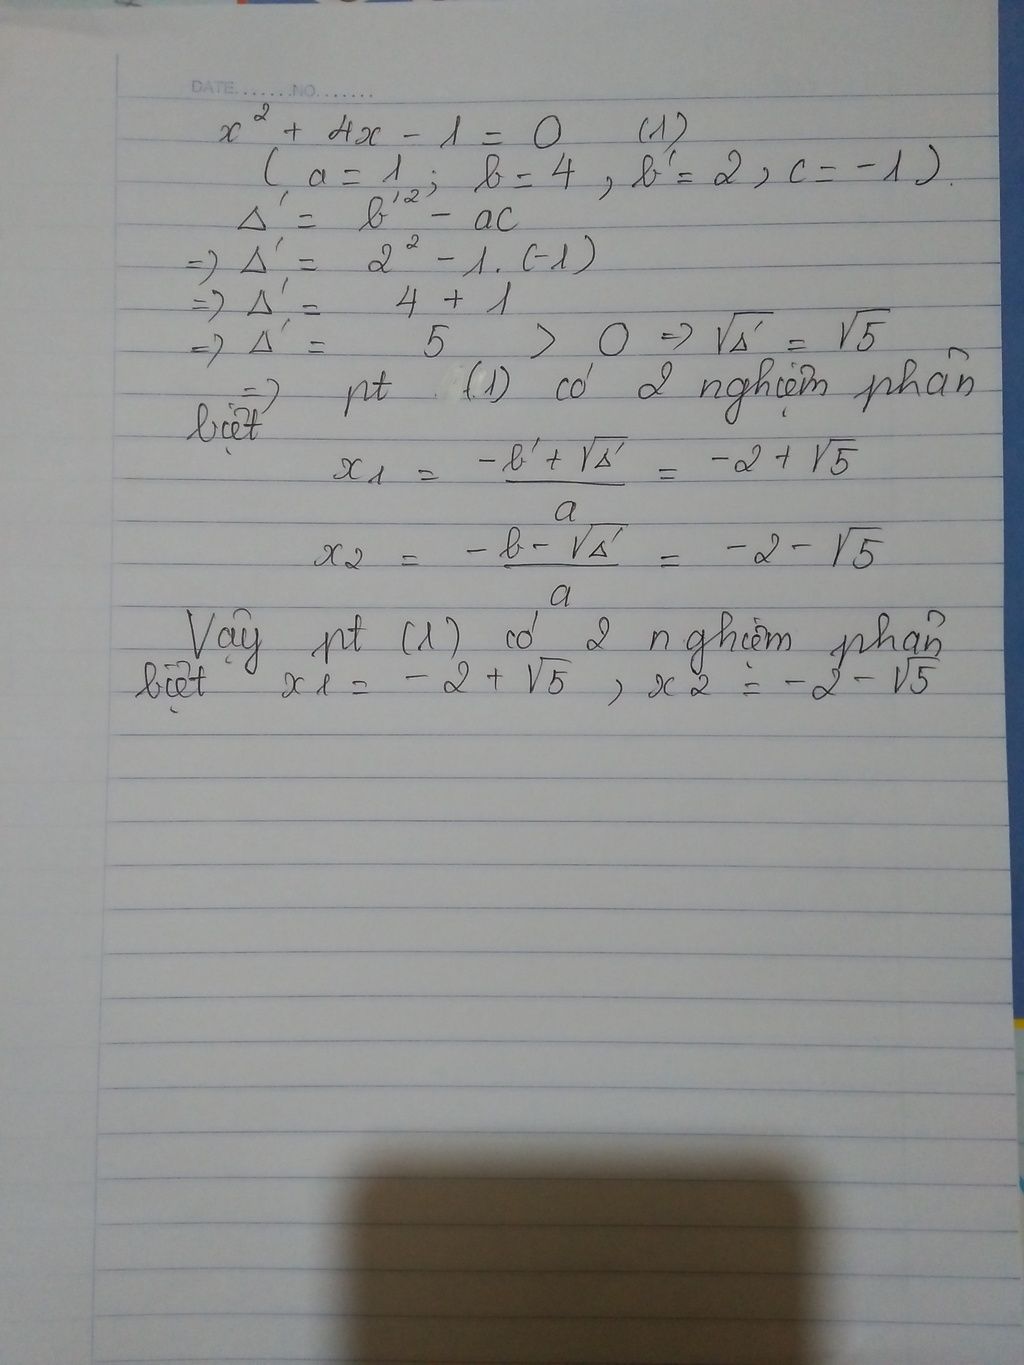 DATE.......NO.......
x² + 4x - 1 = 0 (1)
( a = 1 ; b = 4 , b' = 2 , c = -1 ).
Δ' = b'² - ac
=> Δ' = 2² - 1. (-1)
=> Δ' = 4 + 1
=> Δ' = 5 > 0 => √Δ' = √5
=> pt (1) có 2 nghiệm phân
biệt
x1 = (-b' + √Δ')/a = -2 + √5
x2 = (-b - √Δ')/a = -2 - √5
Vậy pt (1) có 2 nghiệm phân
biệt x1 = -2 + √5 , x2 = -2 - √5